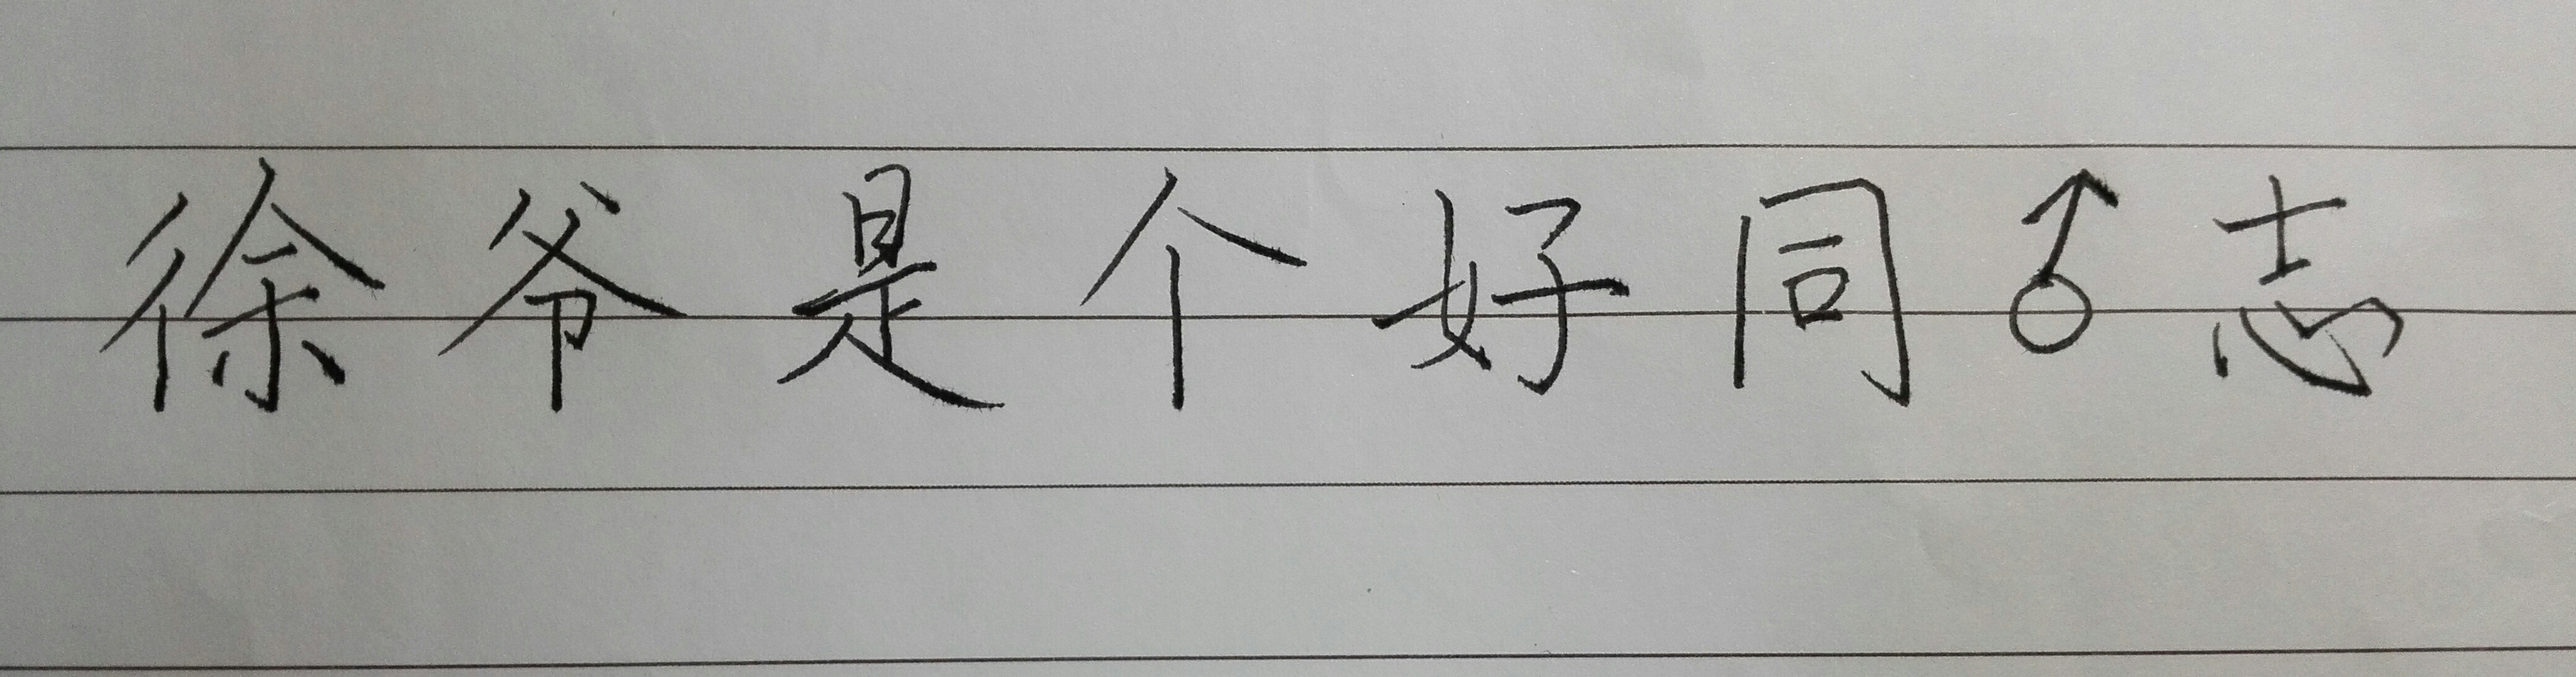 徐爷是个好同♂志